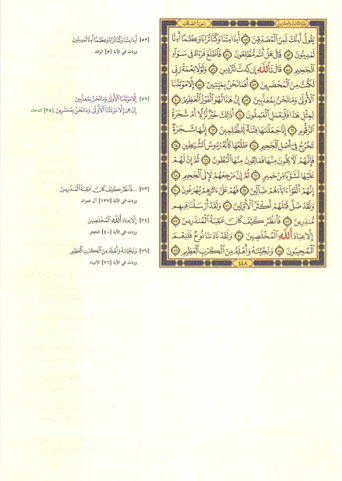 يَقُولُ أَءِنَّكَ لَمِنَ ٱلْمُصَدِّقِينَ ﴿٥٢﴾ أَءِذَا مِتْنَا وَكُنَّا تُرَابًا وَعِظَٰمًا أَءِنَّا
لَمَدِينُونَ ﴿٥٣﴾ قَالَ هَلْ أَنتُم مُّطَّلِعُونَ ﴿٥٤﴾ فَٱطَّلَعَ فَرَءَاهُ فِى سَوَآءِ
ٱلْجَحِيمِ ﴿٥٥﴾ قَالَ تَٱللَّهِ إِن كِدتَّ لَتُرْدِينِ ﴿٥٦﴾ وَلَوْلَا نِعْمَةُ رَبِّى
لَكُنتُ مِنَ ٱلْمُحْضَرِينَ ﴿٥٧﴾ أَفَمَا نَحْنُ بِمَيِّتِينَ ﴿٥٨﴾ إِلَّا مَوْتَتَنَا
ٱلْأُولَىٰ وَمَا نَحْنُ بِمُعَذَّبِينَ ﴿٥٩﴾ إِنَّ هَٰذَا لَهُوَ ٱلْفَوْزُ ٱلْعَظِيمُ ﴿٦٠﴾
لِمِثْلِ هَٰذَا فَلْيَعْمَلِ ٱلْعَٰمِلُونَ ﴿٦١﴾ أَذَٰلِكَ خَيْرٌ نُّزُلًا أَمْ شَجَرَةُ
ٱلزَّقُّومِ ﴿٦٢﴾ إِنَّا جَعَلْنَٰهَا فِتْنَةً لِّلظَّٰلِمِينَ ﴿٦٣﴾ إِنَّهَا شَجَرَةٌ
تَخْرُجُ فِىٓ أَصْلِ ٱلْجَحِيمِ ﴿٦٤﴾ طَلْعُهَا كَأَنَّهُۥ رُءُوسُ ٱلشَّيَٰطِينِ ﴿٦٥﴾
فَإِنَّهُمْ لَءَاكِلُونَ مِنْهَا فَمَالِـُٔونَ مِنْهَا ٱلْبُطُونَ ﴿٦٦﴾ ثُمَّ إِنَّ لَهُمْ
عَلَيْهَا لَشَوْبًا مِّنْ حَمِيمٍ ﴿٦٧﴾ ثُمَّ إِنَّ مَرْجِعَهُمْ لَإِلَى ٱلْجَحِيمِ ﴿٦٨﴾
إِنَّهُمْ أَلْفَوْا۟ ءَابَآءَهُمْ ضَآلِّينَ ﴿٦٩﴾ فَهُمْ عَلَىٰٓ ءَاثَٰرِهِمْ يُهْرَعُونَ ﴿٧٠﴾
وَلَقَدْ ضَلَّ قَبْلَهُمْ أَكْثَرُ ٱلْأَوَّلِينَ ﴿٧١﴾ وَلَقَدْ أَرْسَلْنَا فِيهِم
مُّنذِرِينَ ﴿٧٢﴾ فَٱنظُرْ كَيْفَ كَانَ عَٰقِبَةُ ٱلْمُنذَرِينَ ﴿٧٣﴾
إِلَّا عِبَادَ ٱللَّهِ ٱلْمُخْلَصِينَ ﴿٧٤﴾ وَلَقَدْ نَادَىٰنَا نُوحٌ فَلَنِعْمَ
ٱلْمُجِيبُونَ ﴿٧٥﴾ وَنَجَّيْنَٰهُ وَأَهْلَهُۥ مِنَ ٱلْكَرْبِ ٱلْعَظِيمِ ﴿٧٦﴾
٤٤٨
[٥٣] أَءِذَا مِتْنَا وَكُنَّا تُرَابًا وَعِظَٰمًا أَءِنَّا لَمَدِينُونَ
وردت في الآية [٥] الرعد
[٥٩] إِلَّا مَوْتَتَنَا ٱلْأُولَىٰ وَمَا نَحْنُ بِمُعَذَّبِينَ
إِنْ هِىَ إِلَّا مَوْتَتُنَا ٱلْأُولَىٰ وَمَا نَحْنُ بِمُنشَرِينَ [٣٥] الدخان
[٧٣] ... فَٱنظُرْ كَيْفَ كَانَ عَٰقِبَةُ ٱلْمُنذَرِينَ
وردت في الآية [١٣٧] آل عمران
[٧٤] إِلَّا عِبَادَ ٱللَّهِ ٱلْمُخْلَصِينَ
وردت في الآية [٤٠] الحجر
[٧٦] وَنَجَّيْنَٰهُ وَأَهْلَهُۥ مِنَ ٱلْكَرْبِ ٱلْعَظِيمِ
وردت في الآية [٧٦] الأنبياء